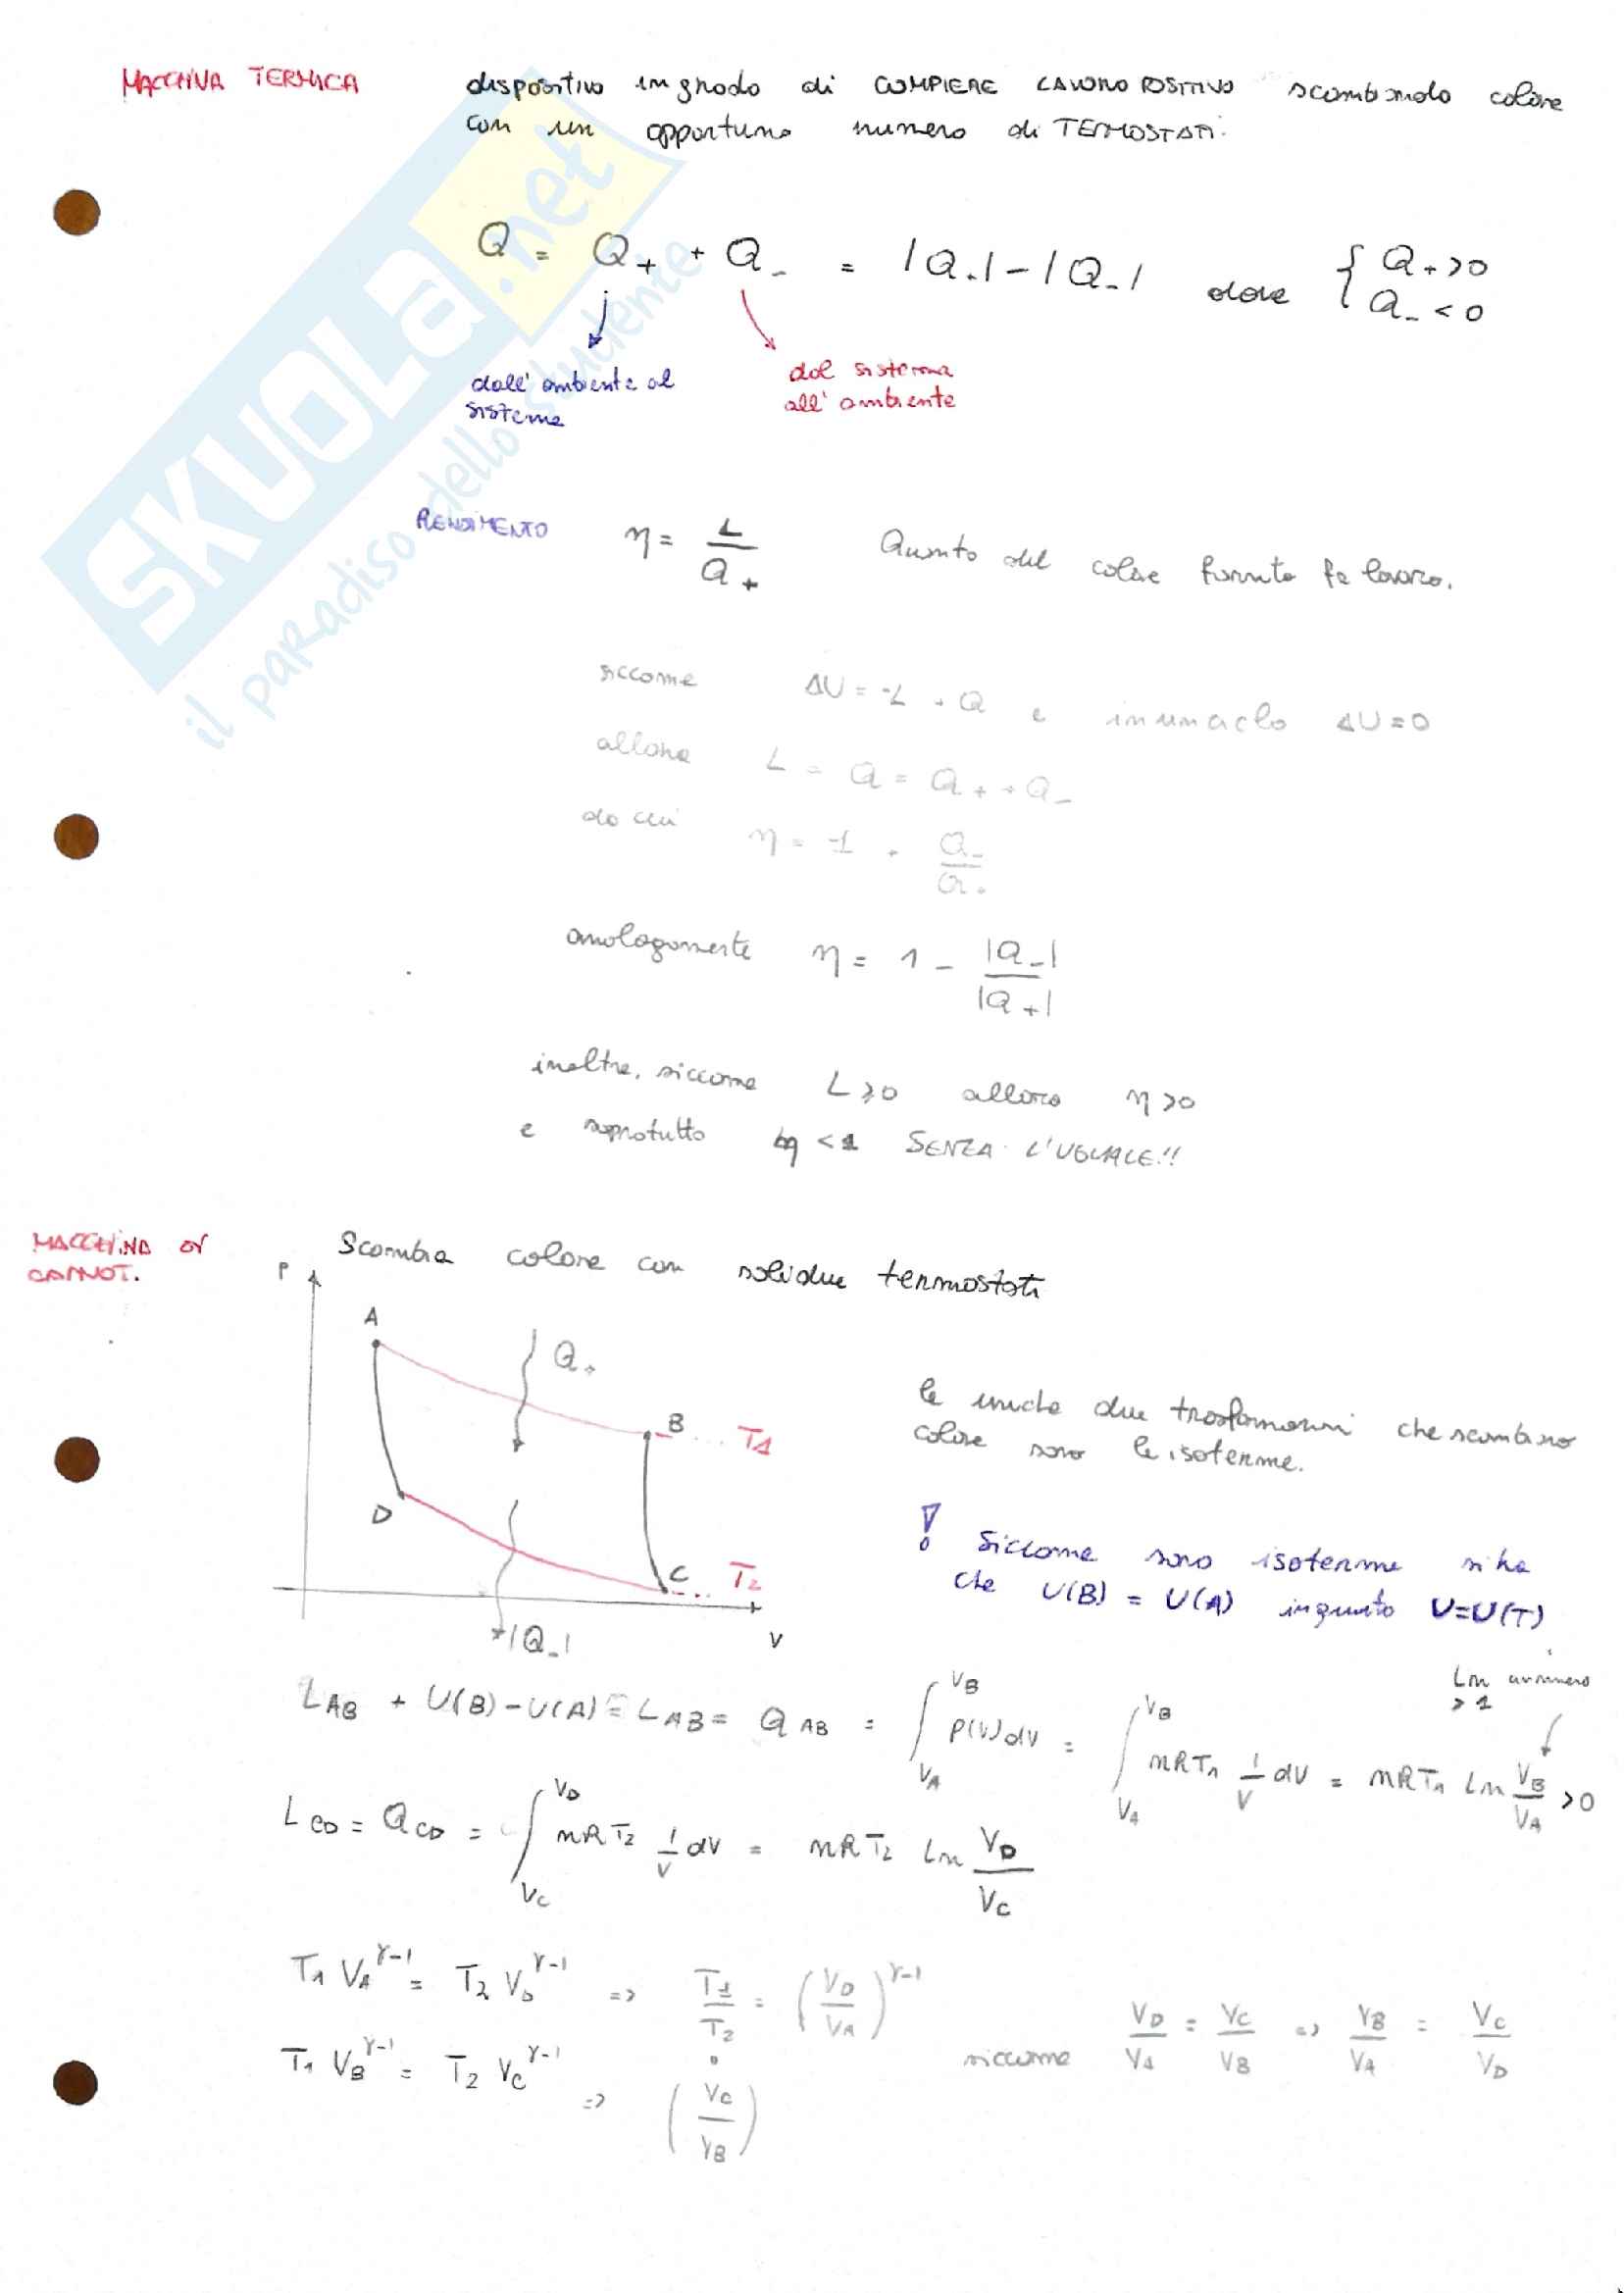 MACCHINA TERMICA dispositivo in grado di COMPIERE LAVORO POSITIVO scambiando calore
con un opportuno numero di TERMOSTATI.
SKUOLA.net
il paradiso dello studente
Q = Q+ + Q- = |Q+| - |Q-| dove { Q+ > 0
Q- < 0
dall'ambiente al
sistema
dal sistema
all'ambiente
RENDIMENTO η = L / Q+ Quanto del calore fornito fa lavoro.
siccome ΔU = -L + Q e in un ciclo ΔU = 0
allora L = Q = Q+ + Q-
da cui η = 1 + Q- / Q+
analogamente η = 1 - |Q-| / |Q+|
inoltre, siccome L ≥ 0 allora η > 0
e soprattutto η < 1 SENZA L'UGUALE!!
MACCHINA DI
CARNOT.
Scambia calore con soli due termostati
P
A
Q+
B ... T1
D
C ... T2
|Q-|
V
le uniche due trasformazioni che scambiano
calore sono le isoterme.
! Siccome sono isoterme si ha
che U(B) = U(A) in quanto U=U(T)
Ln un numero
> 1
L_AB + U(B) - U(A) = L_AB = Q_AB = ∫_{V_A}^{V_B} P(V)dV = ∫_{V_A}^{V_B} nRT1 1/V dV = nRT1 Ln V_B/V_A > 0
L_CD = Q_CD = ∫_{V_C}^{V_D} nRT2 1/V dV = nRT2 Ln V_D/V_C
T1 V_A^{γ-1} = T2 V_D^{γ-1} => T1/T2 = (V_D/V_A)^{γ-1}
T1 V_B^{γ-1} = T2 V_C^{γ-1} => (V_C/V_B)
siccome V_D/V_A = V_C/V_B => V_B/V_A = V_C/V_D